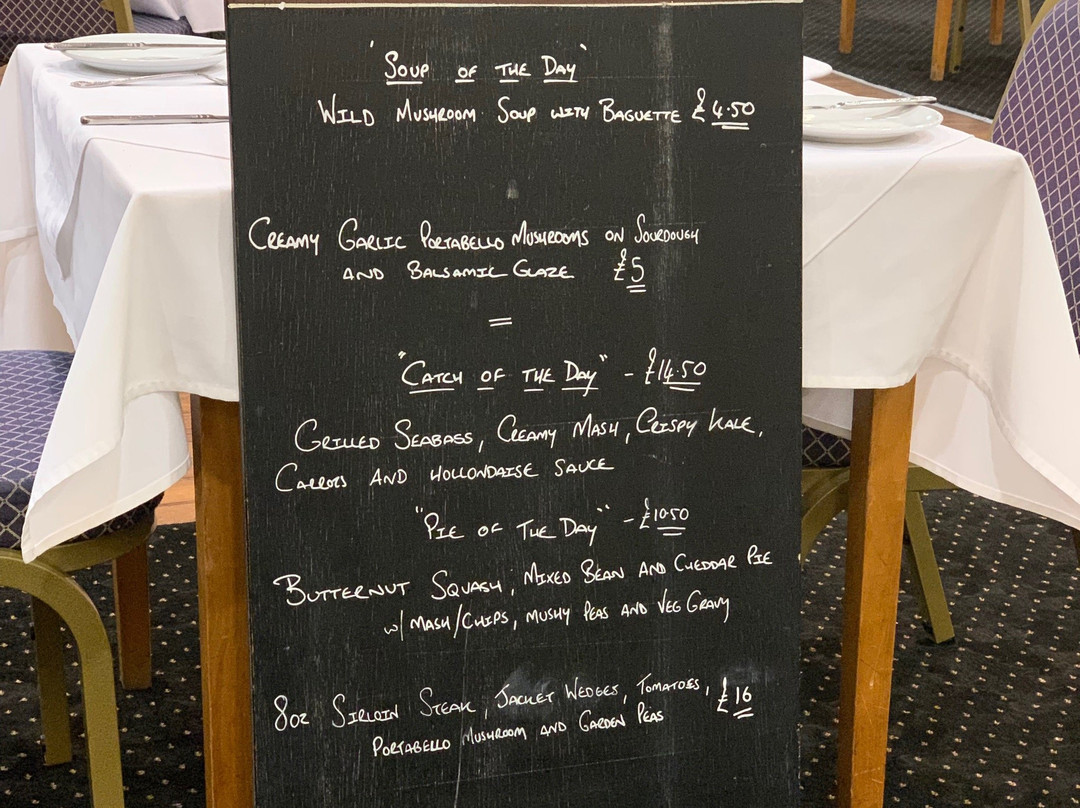 'Soup of the Day'
Wild Mushroom Soup with Baguette £4.50
Creamy Garlic Portabello Mushrooms on Sourdough
and Balsamic Glaze £5
=
"Catch of the Day" - £14.50
Grilled Seabass, Creamy Mash, Crispy Kale,
Carrots and Hollondaise Sauce
"Pie of The Day" - £10.50
Butternut Squash, Mixed Bean and Cheddar Pie
w/ Mash/Chips, Mushy Peas and Veg Gravy
8oz Sirloin Steak, Jacket Wedges, Tomatoes, £16
Portabello Mushroom and Garden Peas